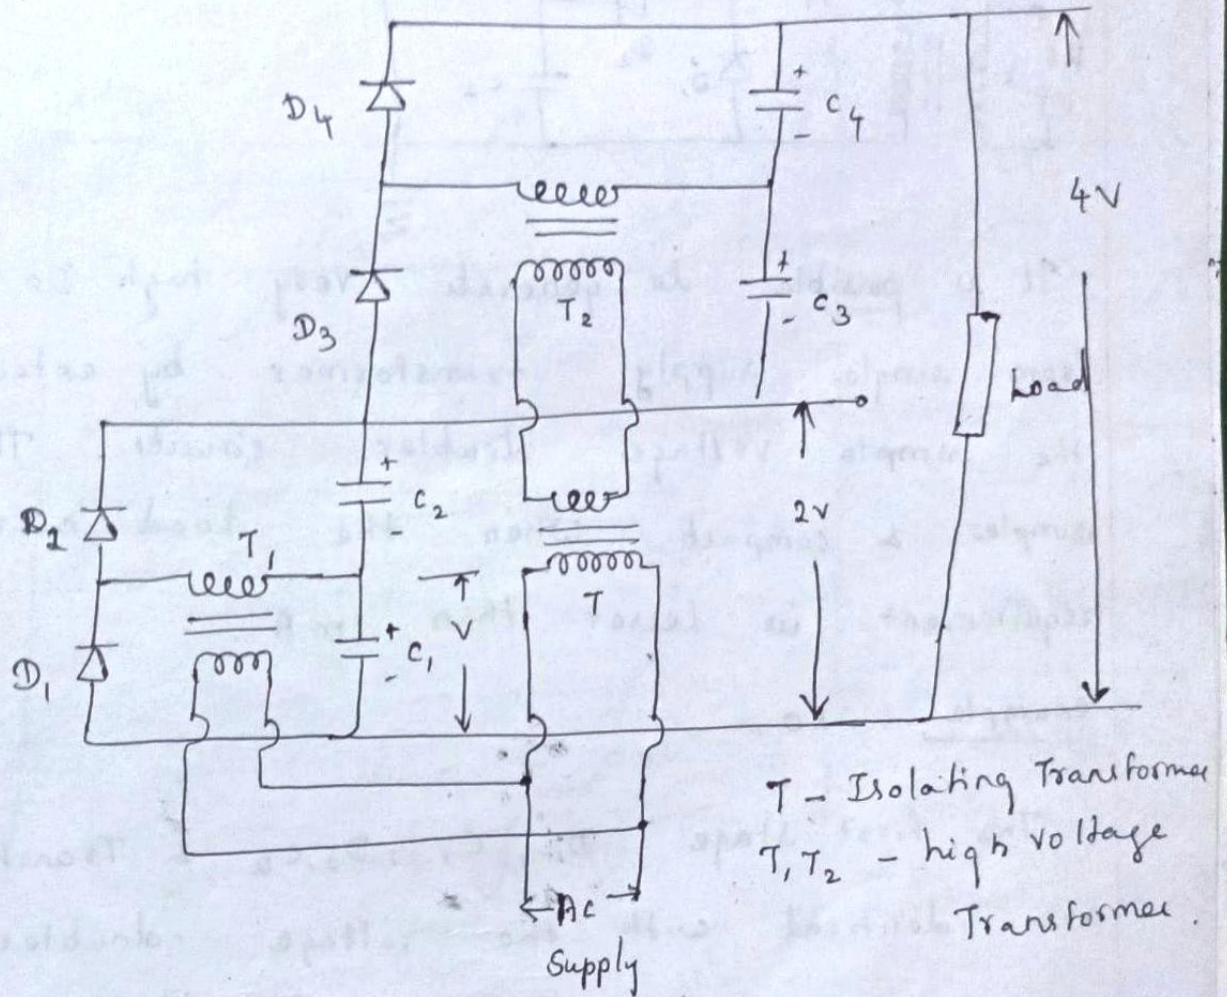 D4
+
C4
-
4V
D3
T2
+
C3
-
Load
+
C2
-
D2
T1
2V
D1
+
C1
-
V
T
T - Isolating Transformer
T1 T2 - high voltage
Transformer.
AC
Supply